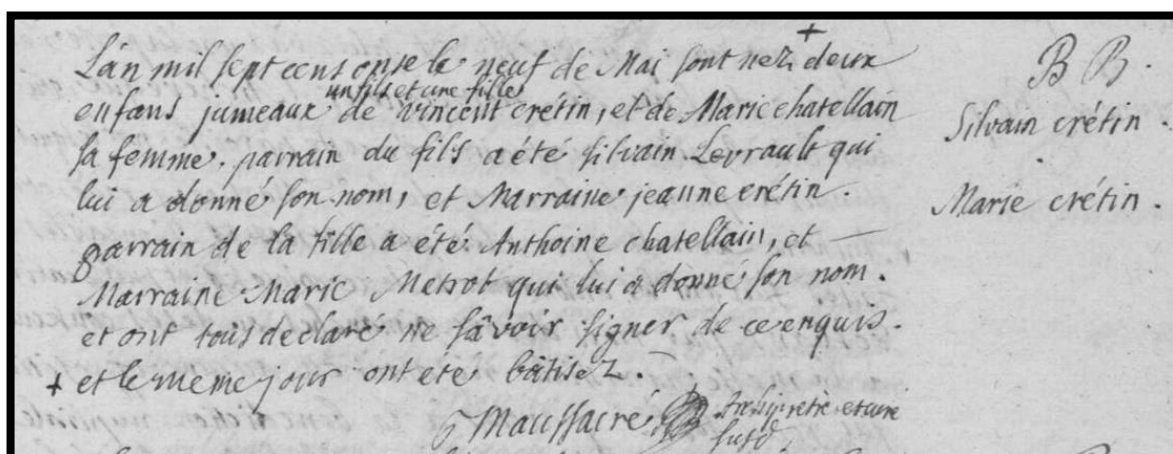 L'an mil sept cens onse le neuf de Mai sont nez + deux
enfans jumeaux un fils et une fille de vincent crétin, et de Marie chatellain
sa femme. parrain du fils a été silvain Levrault qui
lui a donné son nom, et Marraine jeanne crétin.
parrain de la fille a été Anthoine chatellain, et
Marraine Marie Metrot qui lui a donné son nom.
et ont tous declaré ne sâvoir signer de ce enquis.
+ et le meme jour ont été bâtisez.
Maussacré
et curé
susd
B B.
Silvain crétin.
Marie crétin.